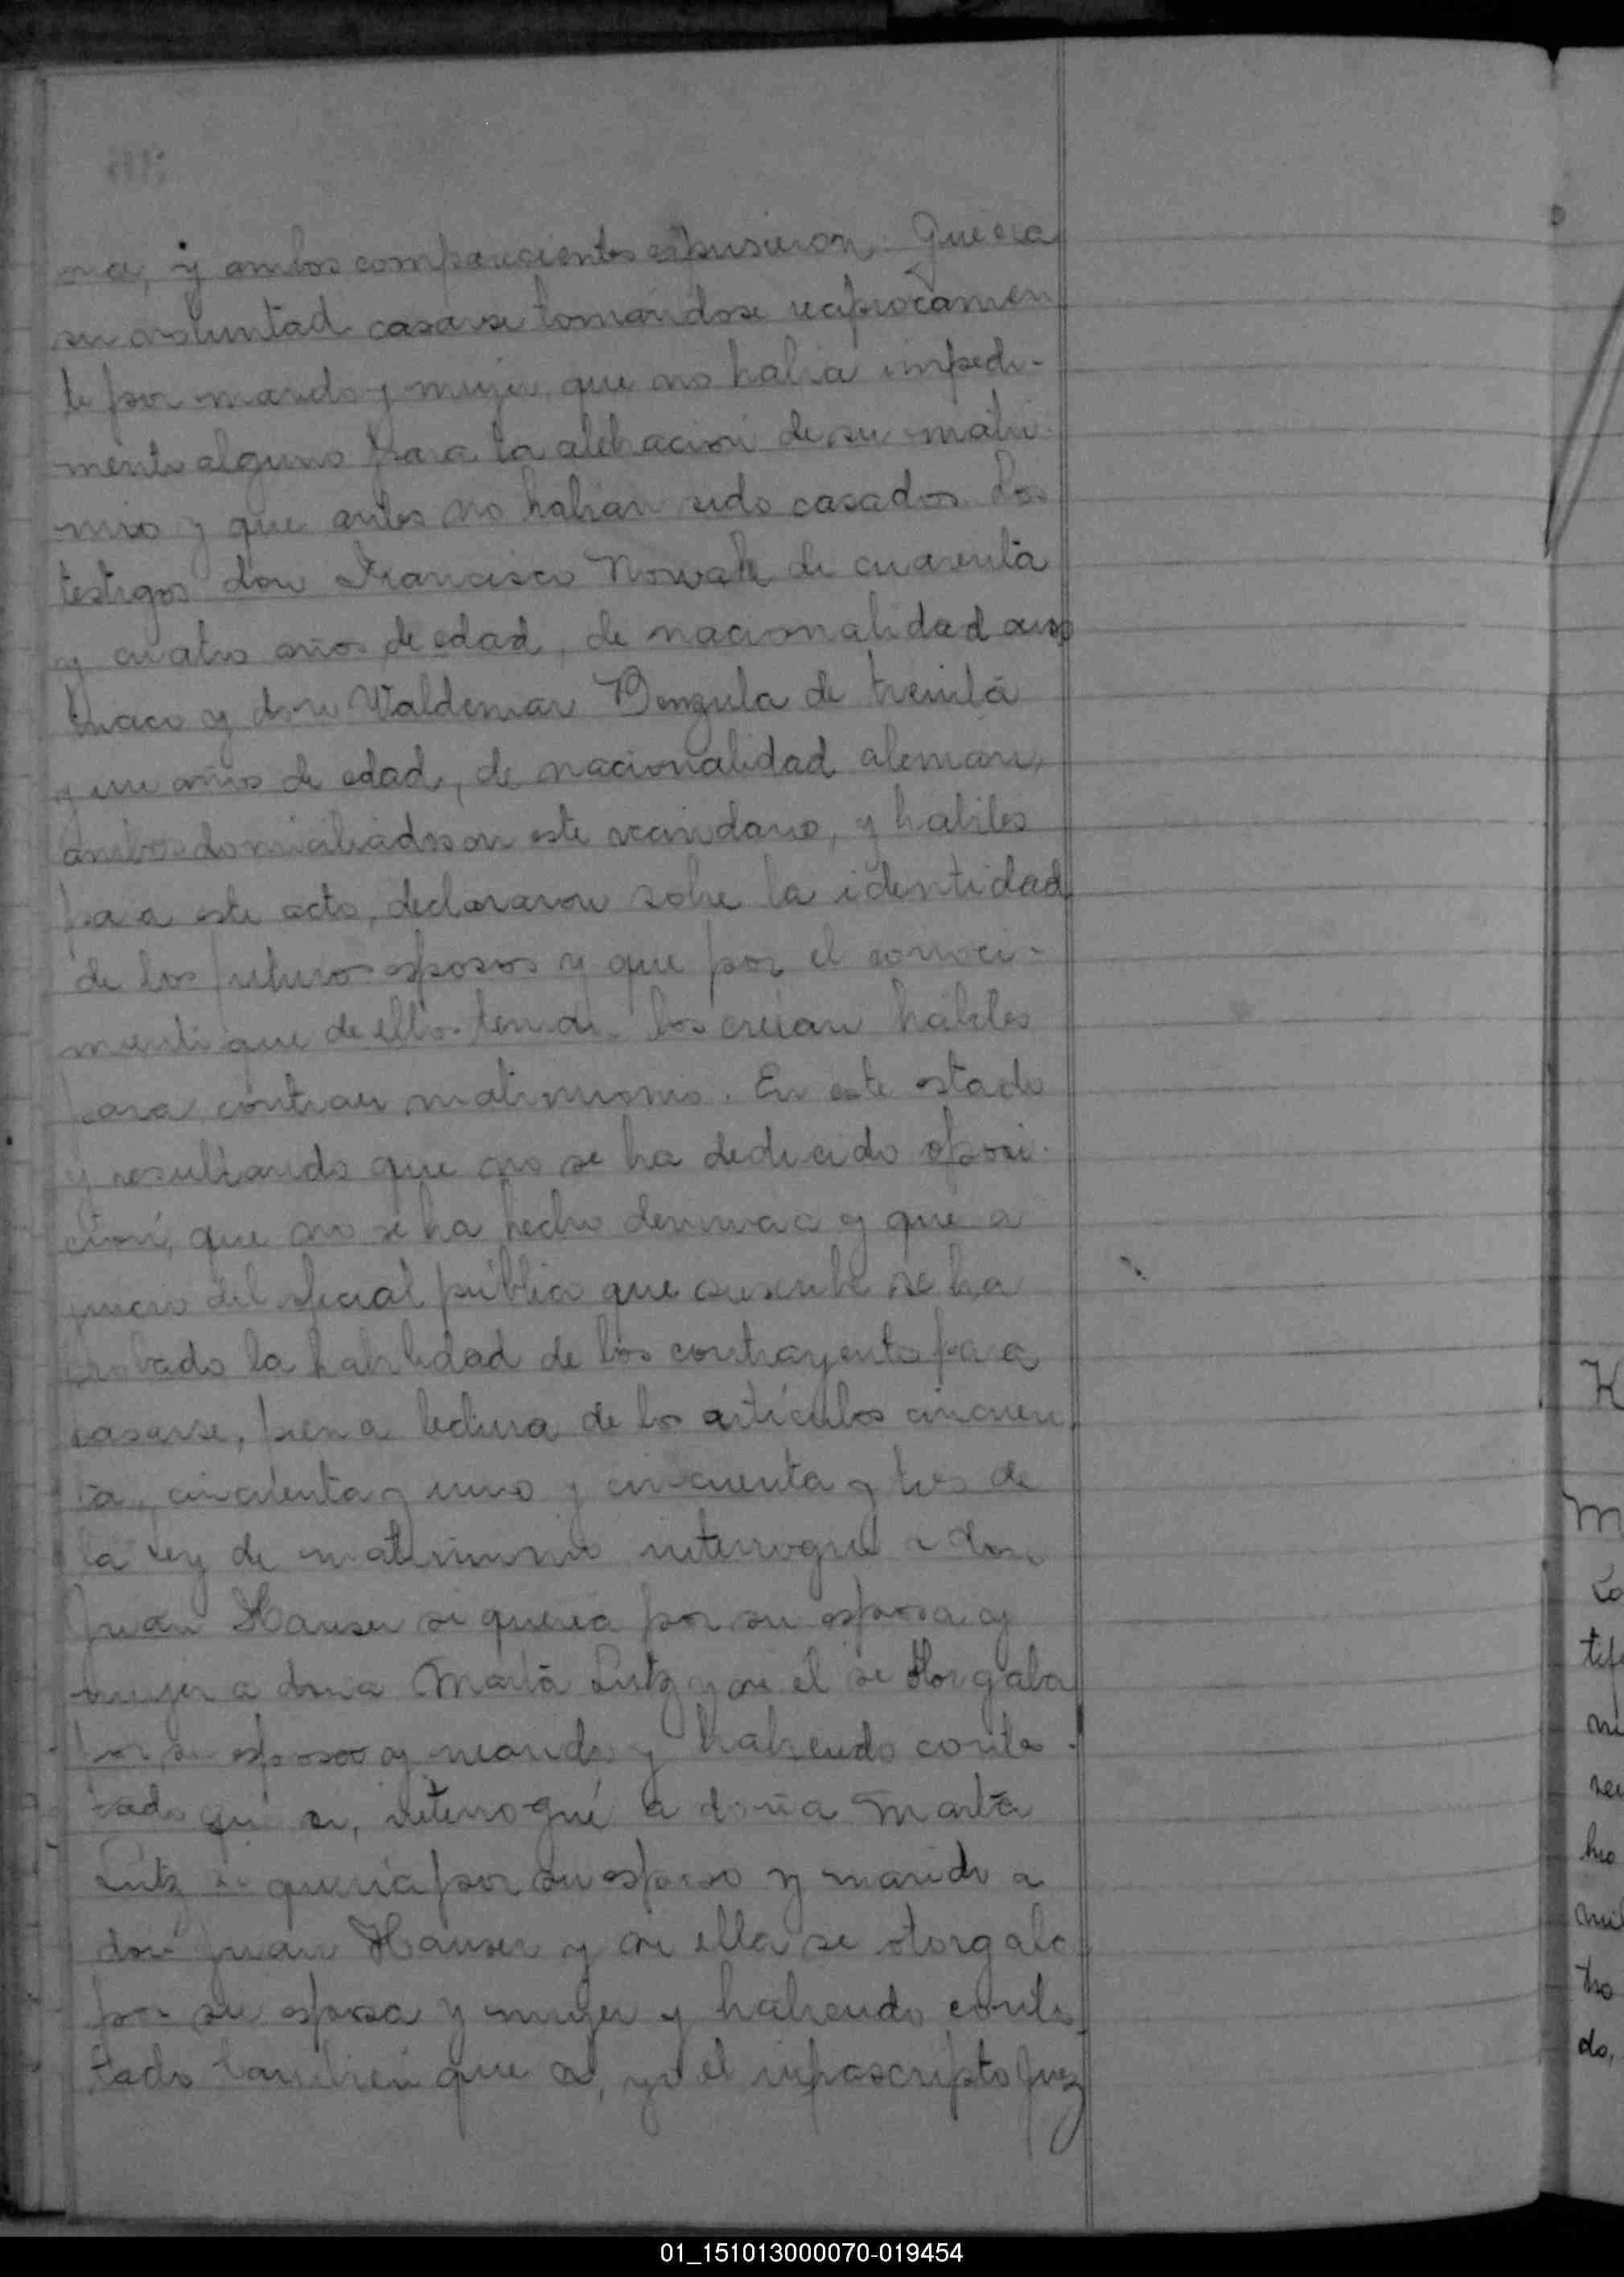 ona, y ambos comparecientes expusieron: Que era
su voluntad casarse tomándose reciprocamen
te por marido y mujer, que no habia impedi-
mento alguno para la celebracion de su matri
nio y que antes no habian sido casados. Los
testigos don Francisco Nowak de cuarenta
y cuatro años de edad, de nacionalidad aus
triaco y don Valdemar de treinta
y un años de edad, de nacionalidad aleman,
ambos domiciliados en este vecindario, y habiles
para este acto, declararon sobre la identidad
de los futuros esposos y que por el conoci-
miento que de ellos tenian los creian habiles
para contraer matrimonio. En este estado
y resultando que no se ha deducido oposi-
cion, que no se ha hecho denuncia y que a
juicio del oficial público que suscribe se ha
probado la habilidad de los contrayentes para
casarse, previa lectura de los artículos cincuen
ta, cincuenta y uno y cincuenta y tres de
la ley de matrimonio interrogué a don
Juan Hauser si queria por su esposa y
mujer a doña Marta Lutz y si el se otorgaba
por su esposo y marido y habiendo contes-
tado que si, interrogué a doña Marta
Lutz si queria por su esposo y marido a
don Juan Hauser y si ella se otorgaba
por su esposa y mujer y habiendo contes-
tado tambien que si, yo el infrascripto Juez
K
M
Lo
do,
01_151013000070-019454